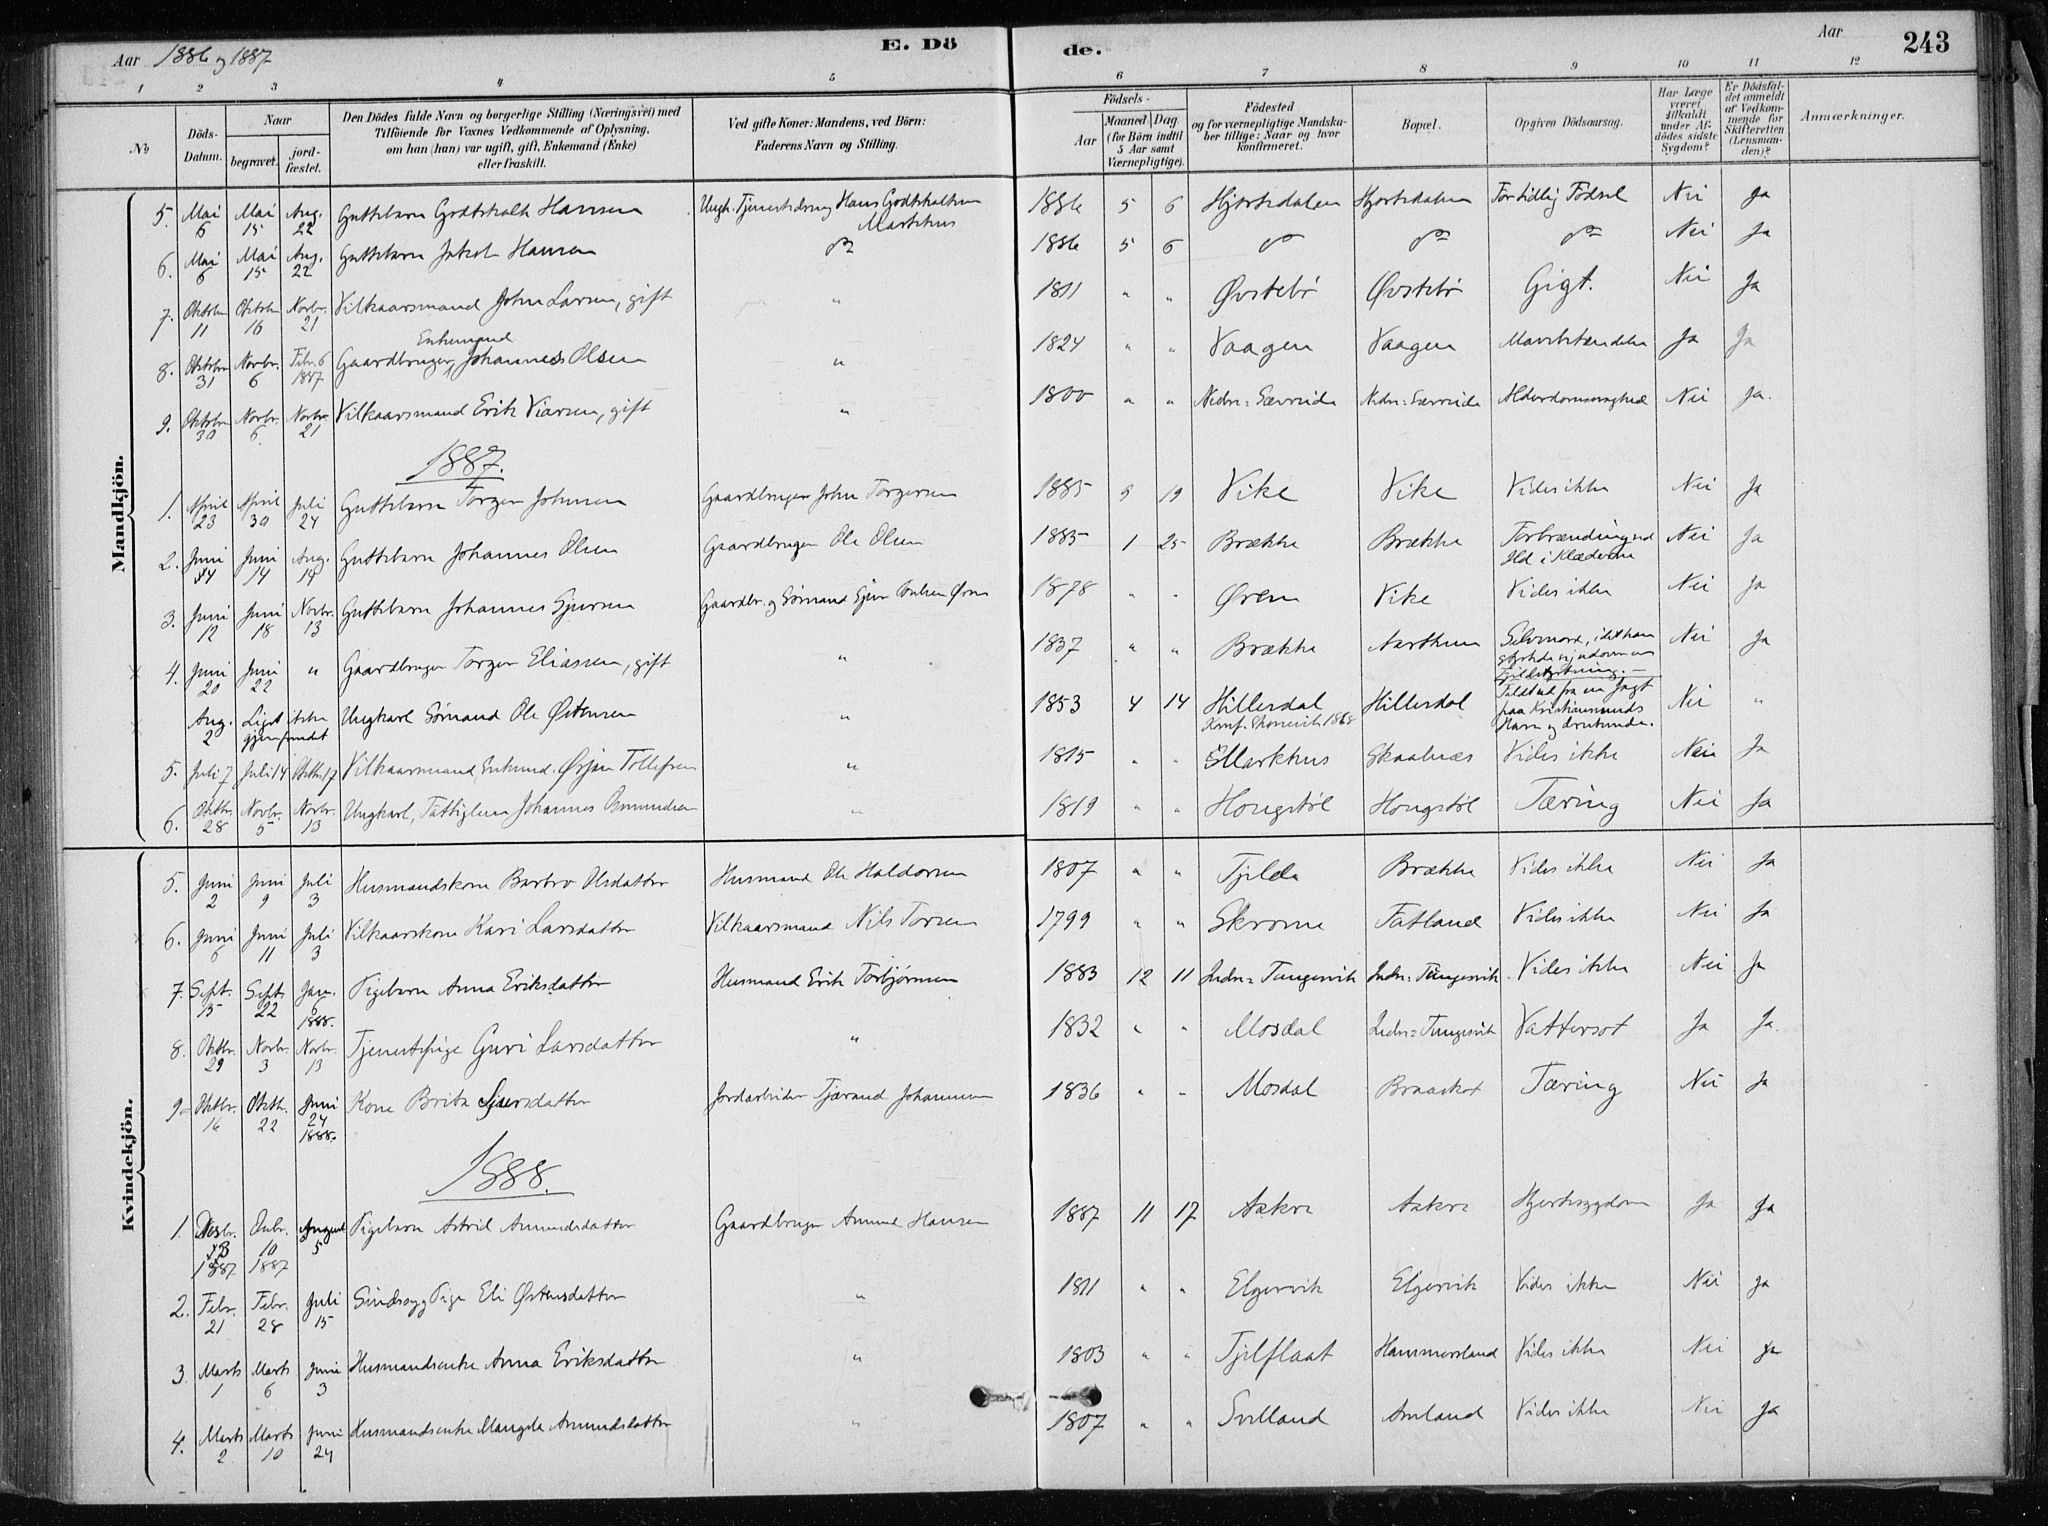 Aar 1886 og 1887
E. Dö
de.
Aar
243
1 2 3 4 5 6 7 8 9 10 11 12
No
Döds-Datum.
Naar
begravet.
jord-fæstet.
Den Dödes fulde Navn og borgerlige Stilling (Næringsvei) med
Tilföiende for Voxnes Vedkommende af Oplysning,
om han (hun) var ugift, gift, Enkemand (Enke)
eller fraskilt.
Ved gifte Koner: Mandens, ved Börn:
Faderens Navn og Stilling.
Födsels-
Aar
Maaned. Dag.
(for Börn indtil
5 Aar samt
Værnepligtige).
Födested
og for værnepligtige Mandska-
ber tillige: Naar og hvor
konfirmeret.
Bopæl.
Opgiven Dödsaarsag.
Har Læge
været
tilkaldt
under Af-
dödes sidste
Sygdom?
Er Dödsfal-
det anmeldt
af Vedkom-
mende for
Skifteretten
(Lensman-
den)?
Anmærkninger.
Mandkjön.
5. Mai 6 Mai 15 Aug. 22 Guttebarn Godtskalk Hansen Ungk. Tjenestedreng Hans Godtskalksen Markhus 1886 5 6 Hjortedalen Hjortedalen For tidlig Födsel Nei Ja
6. Mai 6 Mai 15 Aug. 22 Guttebarn Jakob Hansen do 1886 5 6 do do do Nei Ja
7. Oktober 11 Oktober 16 Novbr. 21 Vilkaarsmand John Larsen, gift " 1811 " " Øvstebø Øvstebø Gigt. Nei Ja
8. Oktober 31 Novbr. 6 Febr. 6 1887 Gaardbruger, Enkemand Johannes Olsen " 1824 " " Vaagen Vaagen Ja Ja
9. Oktober 30 Novbr. 6. Novbr. 21 Vilkaarsmand Erik Viarsen, gift " 1800 " " Nedre=Sævreide Nedre=Sævreide Alderdomssvaghed Nei Ja.
1887.
1. April 23 April 30 Juli 24 Guttebarn Torger Johnsen Gaardbruger John Torgersen 1885 9 19 Vike Vike Vides ikke Nei Ja
2. Juni 4 Juni 14 Aug. 14 Guttebarn Johannes Olsen Gaardbruger Ole Olsen 1885 1 25 Brække Brække Forbrænding ved Ild i Klæderne Nei Ja
3. Juni 12 Juni 18 Novbr. 13 Guttebarn Johannes Sjursen Gaardbr. og Sømand Sjur 1878 " " Ørem Vike Vides ikke Nei Ja
4. Juni 20 Juni 22 " Gaardbruger Torger Eliassen, gift " 1837 " " Brække Aarthun Selvmord, idet han styrtede sig udover en Nei Ja
Aug. 2 Liget ikke gjenfundet Ungkarl Sømand Ole Østensen " 1853 4 14 Hillesdal Konf. 1868 Hillesdal Faldt ud fra en Jagt paa Kristiansunds Havn og druknede. Nei "
5. Juli 7 Juli 14 Oktbr. 17 Vilkaarsmand, Enkemd. Ørjan Tollefsen " 1815 " " Markhus Skaalnæs Vides ikke Nei Ja
6. Oktbr. 28 Novbr. 5 Novbr. 13 Ungkarl, Fattiglem Johannes " 1819 " " Hougstøl Hougstøl Tæring Nei Ja
Kvindekjön.
5. Juni 2 Juni 9 Juli 3 Husmandskone Barbro Olsdatter Husmand Ole Haldorsen 1807 " " Tjelde Brække Vides ikke Nei Ja
6. Juni 6 Juni 11 Juli 3 Vilkaarskone Kari Larsdatter Vilkaarsmand Nils Torsen 1799 " " Skromme Fatland Vides ikke Nei Ja
7. Sept. 15 Sept. 22 Jan. 6 1888. Pigebarn Anna Eriksdatter Husmand Erik Torbjørnsen 1883 12 11 Indre=Tungesvik Indre=Tungesvik Vides ikke Nei Ja
8. Oktbr. 29 Novbr. 3 Novbr. 13 Tjenestepige Guri Larsdatter " 1832 " " Mosdal Indre=Tungesvik Vattersot Ja Ja.
9. Oktbr. 16 Oktb. 22 Juni 24 1888. Kone Brita Sjursdatter Jordarbeider Tjærand Johannesen 1836 " " Mosdal Braaskot Tæring Nei Ja
1888.
1. Desbr. 3 1887 Desbr. 10 1887 August 5 Pigebarn Astrid Amundsdatter Gaardbruger Amund Hansen 1887 11 17 Askre Askre Hjertesygdom Ja Ja
2. Febr. 21 Febr. 28 Juli 15 Sindssyg Pige Eli Østensdatter " 1811 " " Elgervik Elgervik Vides ikke Nei Ja
3. Marts 1 Marts 6 Juni 3 Husmandsenke Anna Eriksdatter " 1803 " " Tjelflaat Hammersland Vides ikke Nei Ja
4. Marts 2 Marts 10 Juni 24 Husmandsenke Mangela Amundsdatter " 1807 " " Svelland Amland Vides ikke Nei Ja